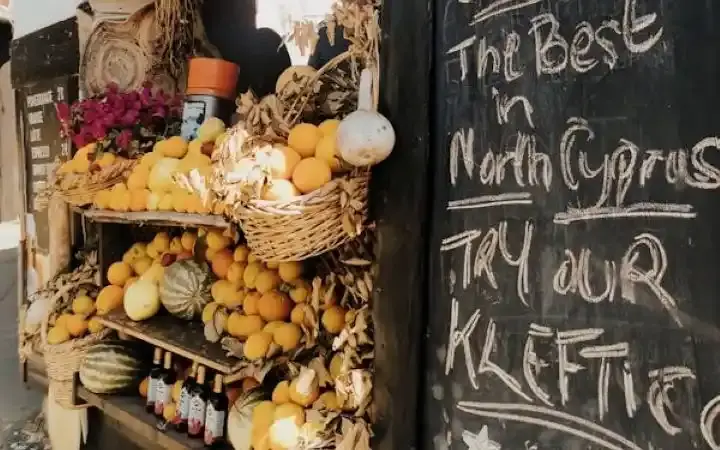 The Best
in
North Cyprus
TRY OUR
KLEFTIC